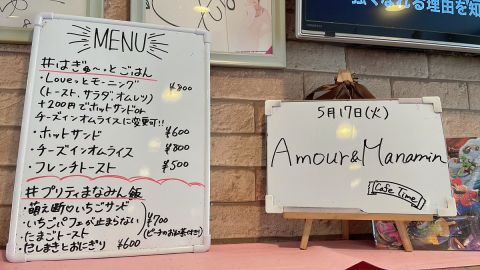 強くなれる理由を知
MENU
#はぎゅ〜っとごはん
・Loveっとモーニング ¥800
(トースト、サラダ、オムレツ)
+200円でホットサンドor
チーズインオムライスに変更可!!
・ホットサンド ¥600
・チーズインオムライス ¥800
・フレンチトースト ¥500
#プリティまなみん飯
・萌え断♡いちごサンド
・いちごパフェが止まらない ¥700
・たまごトースト (ピーチのお紅茶付き)
・だしまきとおにぎり ¥600
5月17日(火)
Amour&Manamin
Cafe Time